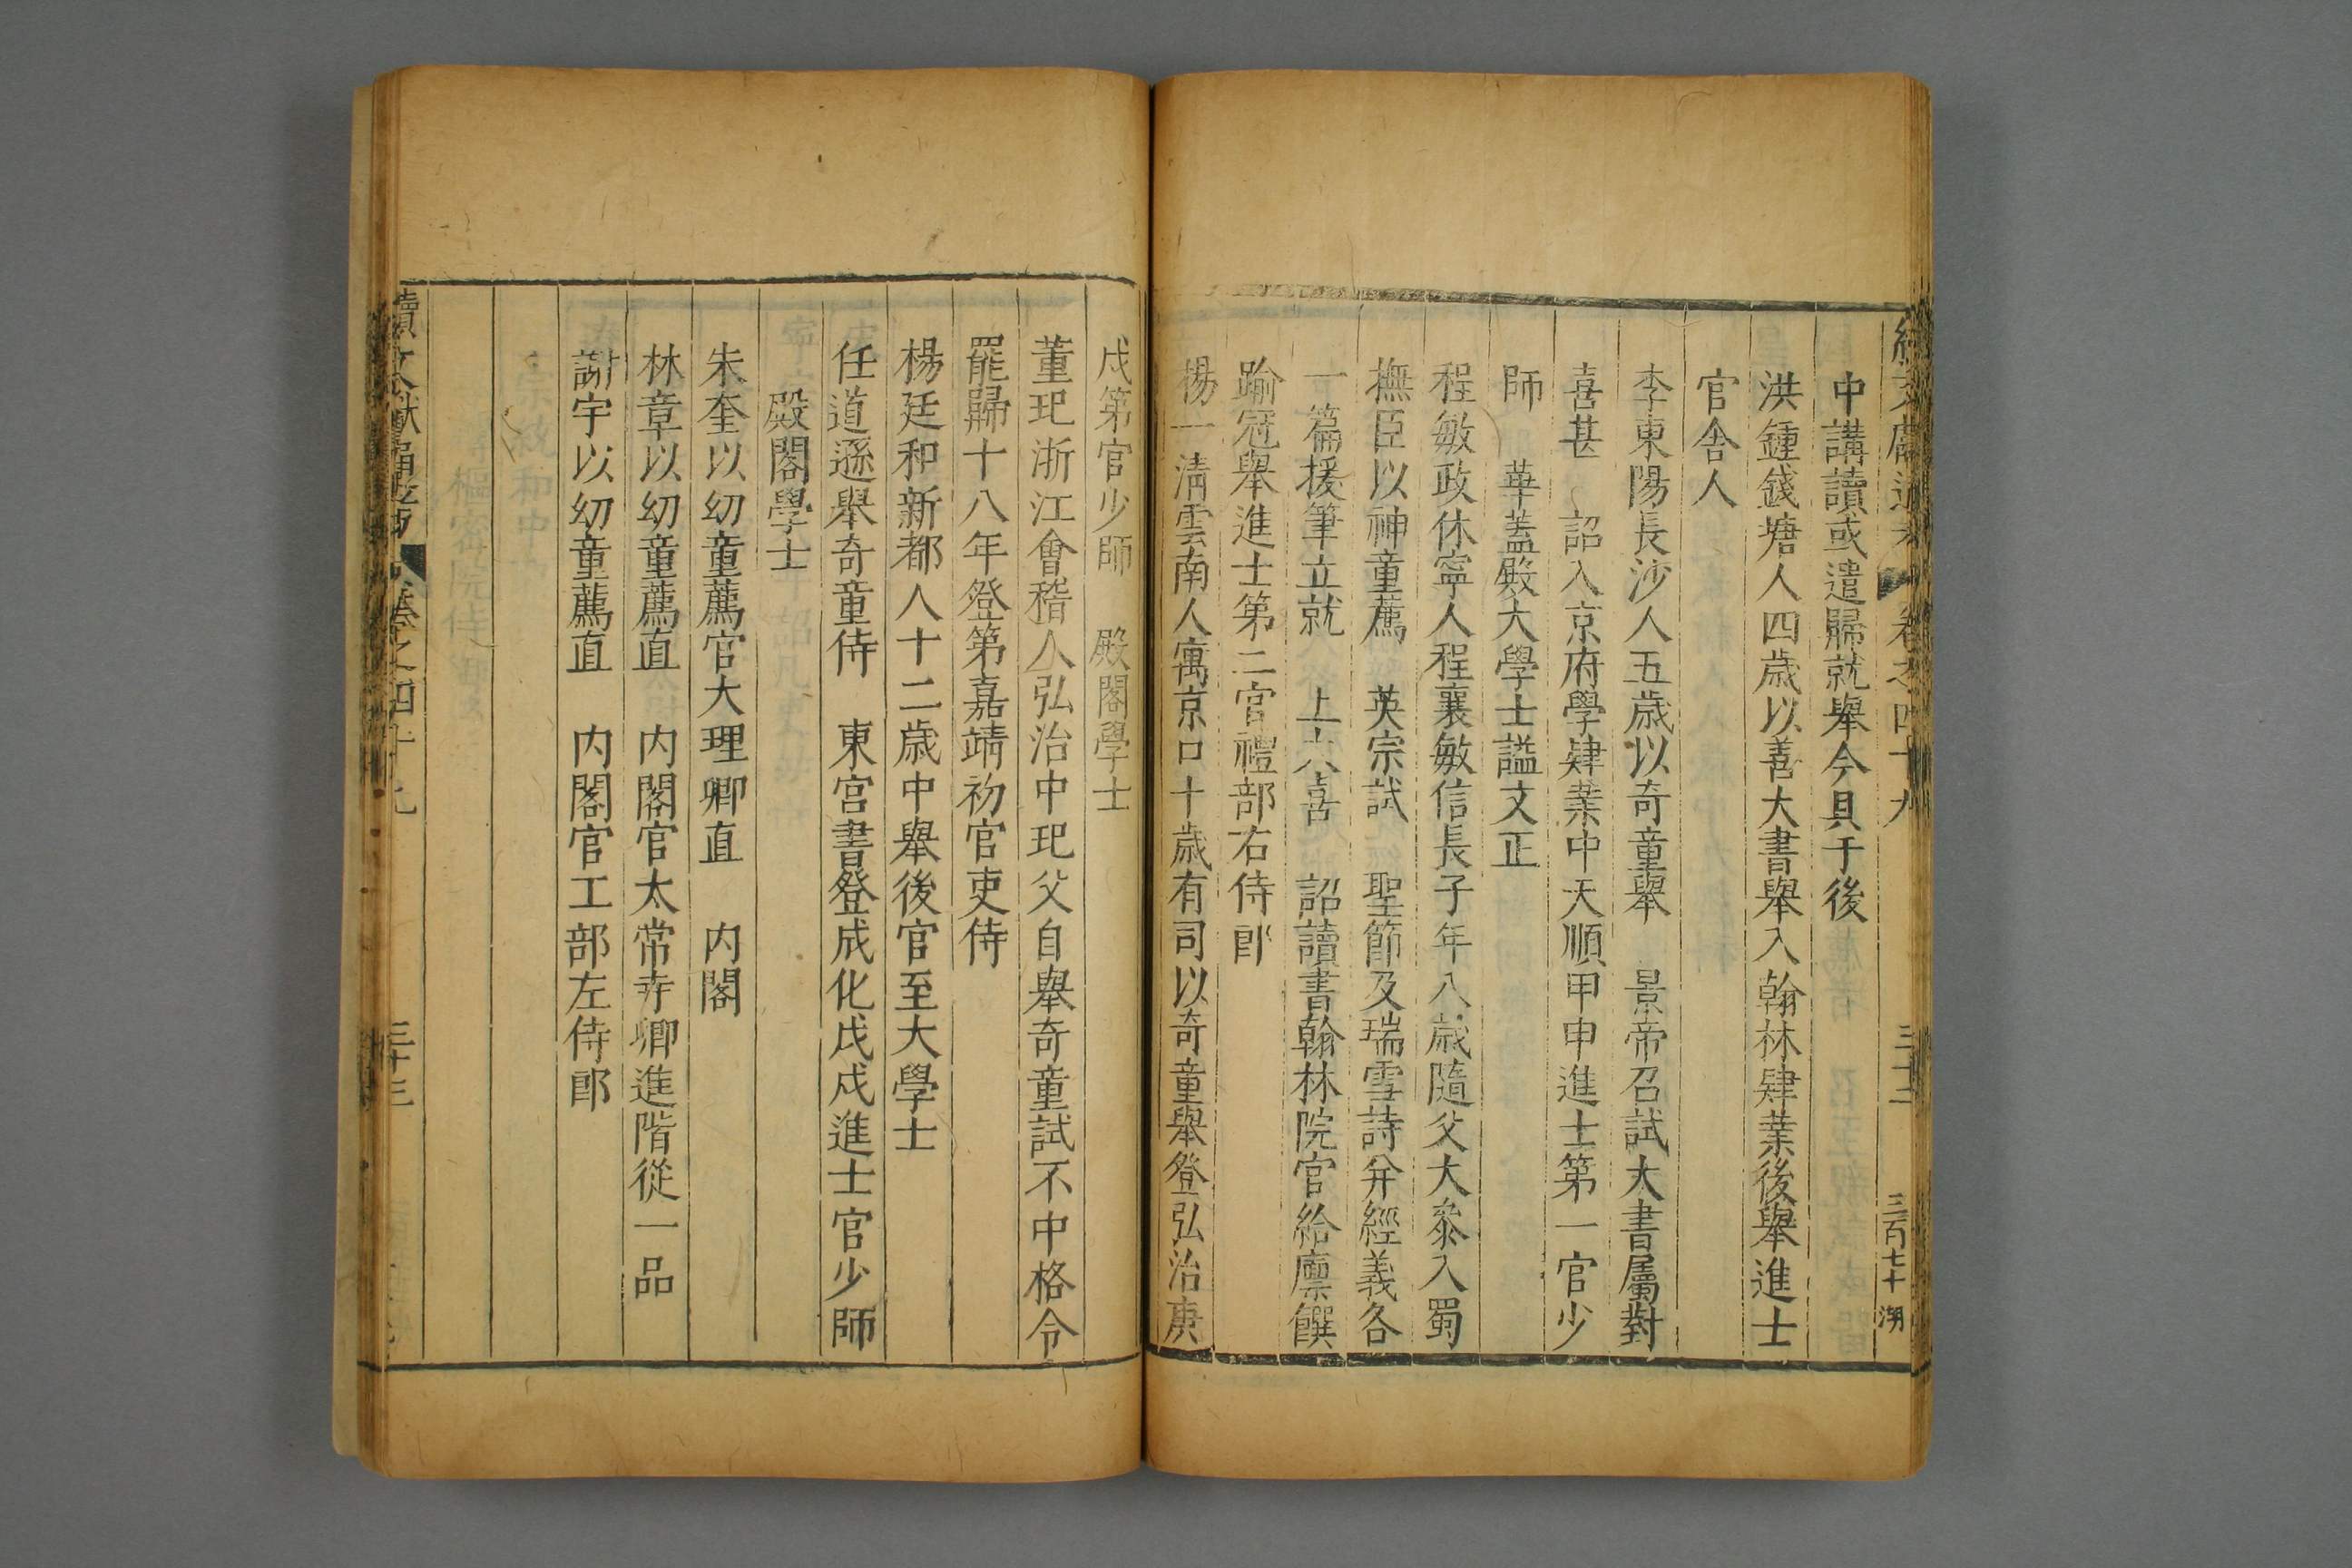 續文獻通考 卷之四十九 三十二 三百七十 湖
中講讀或遣歸就舉今具于後
洪鍾錢塘人四歲以善大書舉入翰林肄業後舉進士
官舍人
李東陽長沙人五歲以奇童舉 景帝召試大書屬對
喜甚 詔入京府學肄業中天順甲申進士第一官少
師 華蓋殿大學士謚文正
程敏政休寧人程襄敏信長子年八歲隨父大叅入蜀
撫臣以神童薦 英宗試 聖節及瑞雪詩并經義各
一篇援筆立就 上大喜 詔讀書翰林院官給廩饌
踰冠舉進士第二官禮部右侍郎
楊一清雲南人寓京口十歲有司以奇童舉登弘治庚
戌第官少師 殿閣學士
董玘浙江會稽人弘治中玘父自舉奇童試不中格令
罷歸十八年登第嘉靖初官吏侍
楊廷和新都人十二歲中舉後官至大學士
任道遜舉奇童侍 東宮書登成化戊戌進士官少師
殿閣學士
朱奎以幼童薦官大理卿直 内閣
林章以幼童薦直 内閣官太常寺卿進階從一品
謝宇以幼童薦直 内閣官工部左侍郎
續文獻通考 卷之四十九 三十三